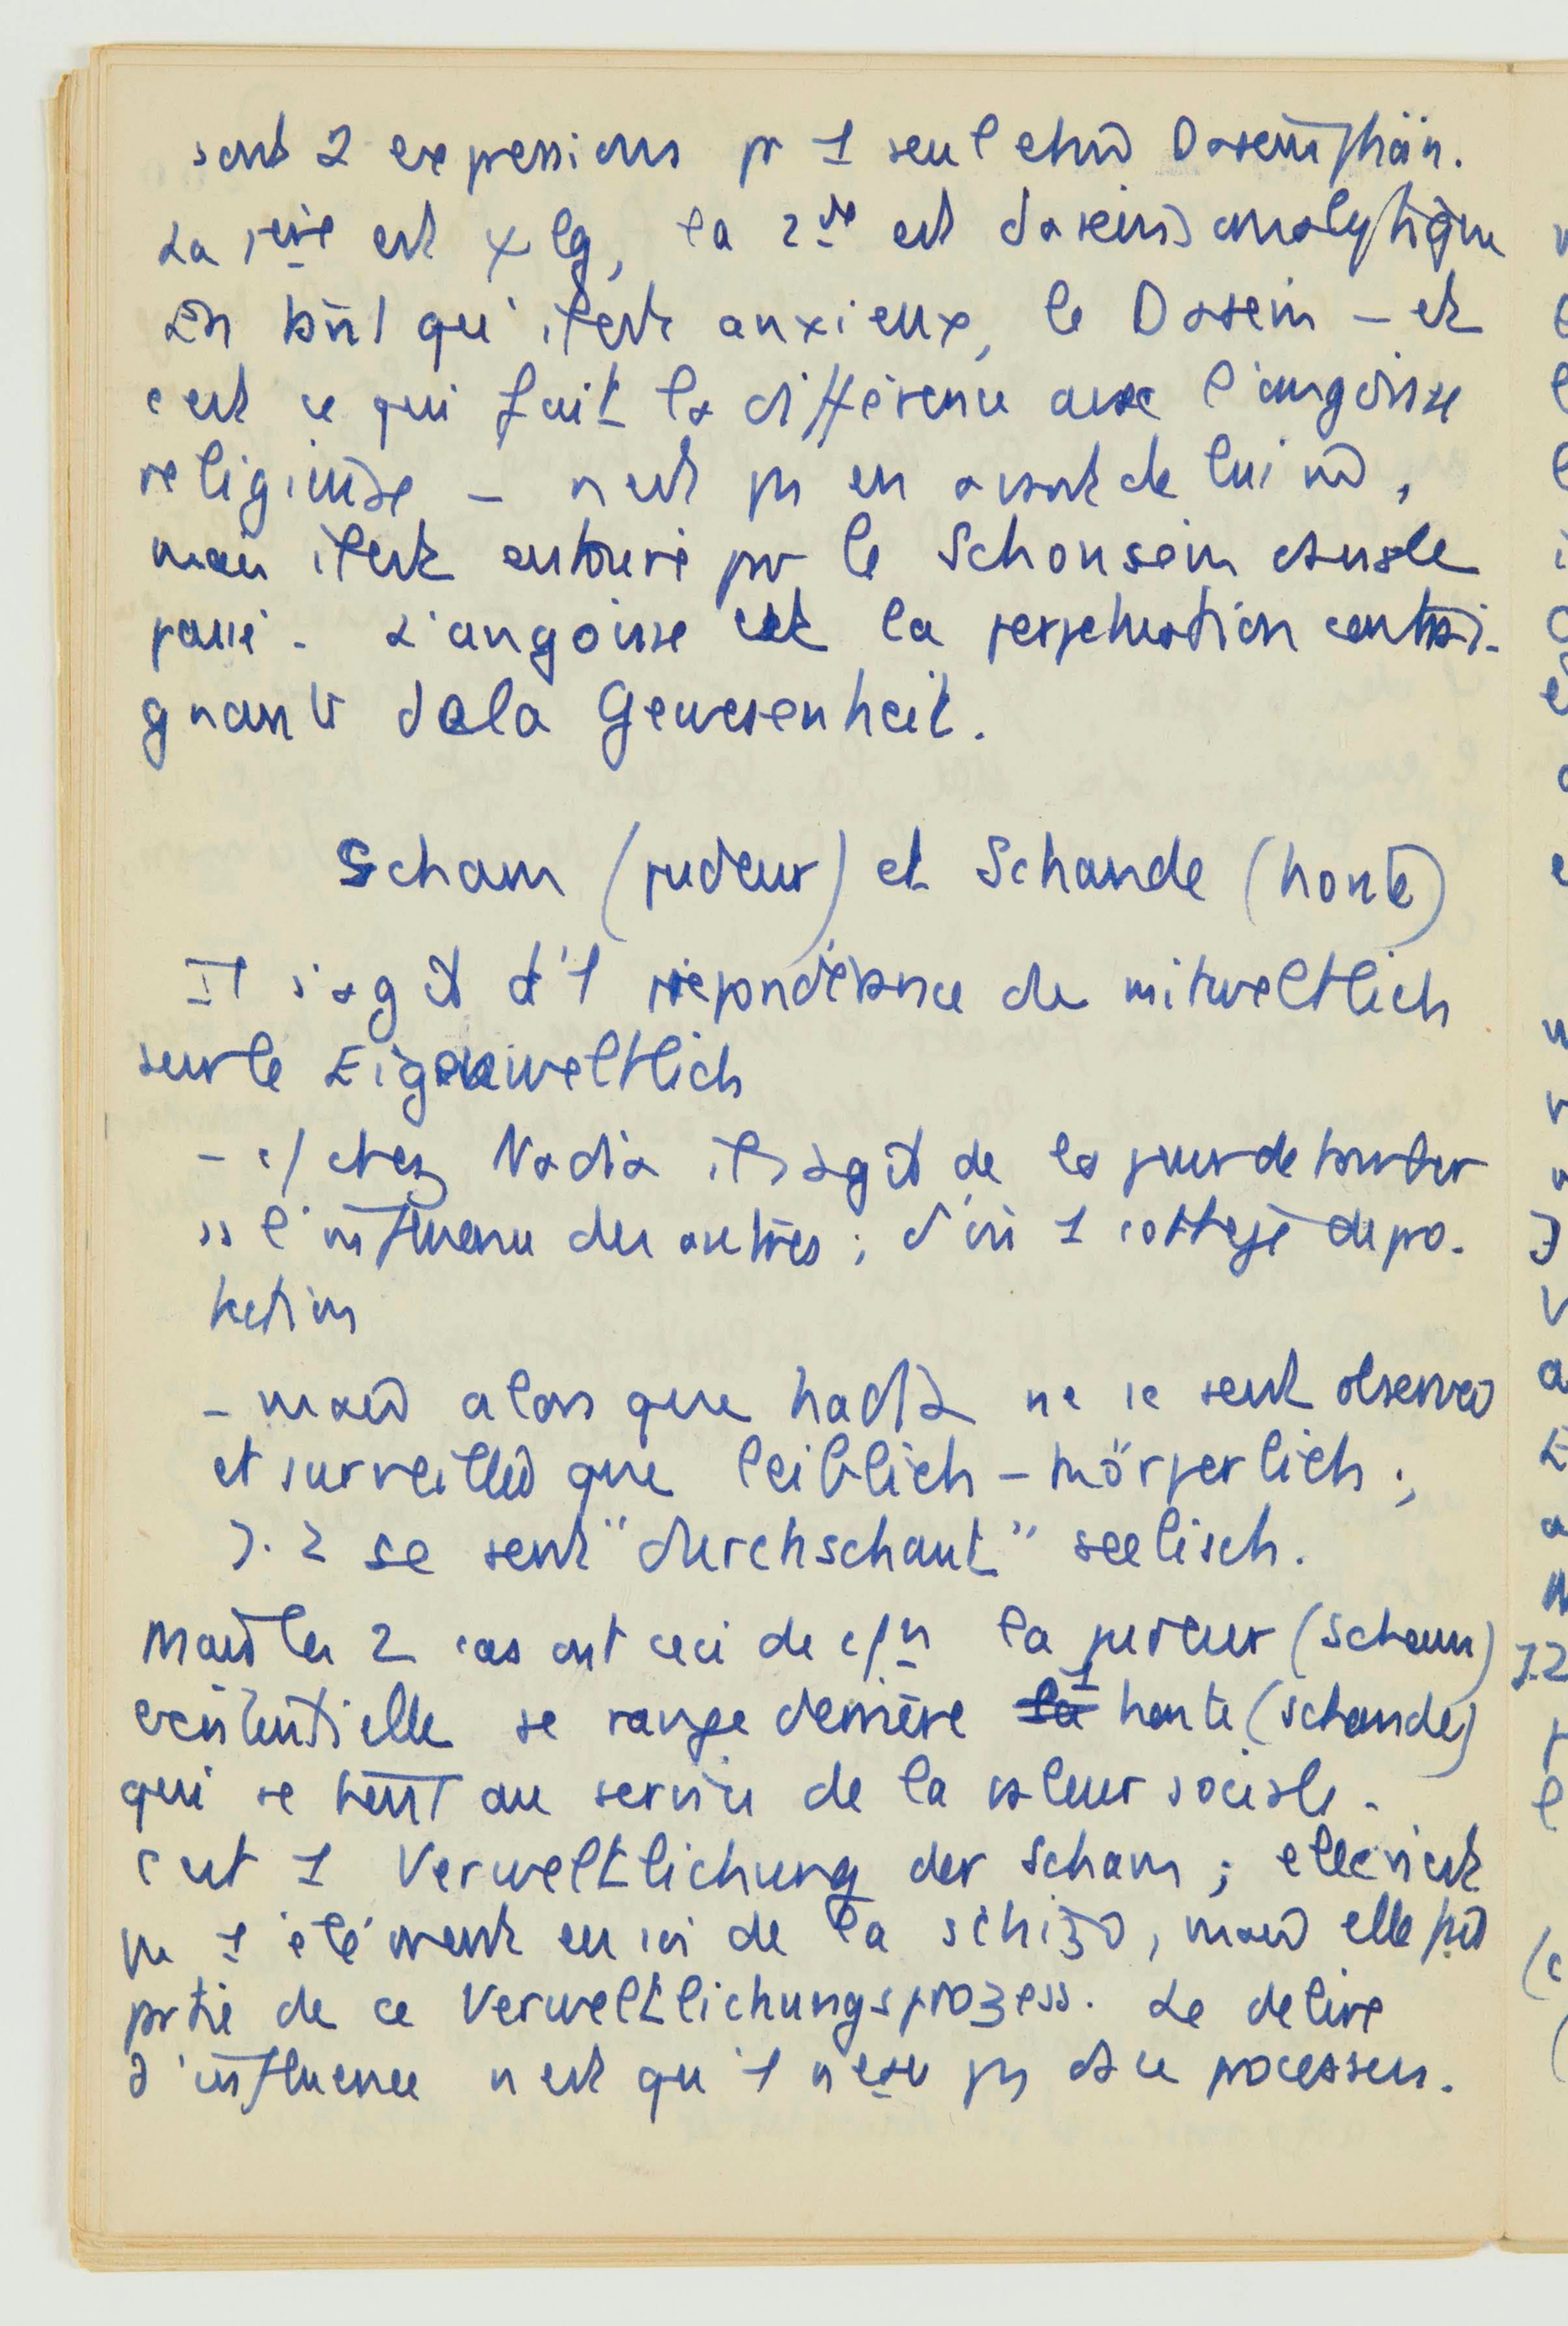 sont 2 expressions pr 1 seul et mm Daseinsphän.
La 1ère est ψlg, la 2de est daseinsanalytique
En tant qu'il est anxieux, le Dasein – et
c'est ce qui fait la différence avec l'angoisse
religieuse – n'est ps en avant de lui mm,
mais il est entouré pr le Schonsein ds le
passé. L'angoisse est la perpétuation contrai-
gnante de la Gewesenheit.
Scham (pudeur) et Schande (honte)
Il s'agit d'1 prépondérance de mitweltlich
sur le Eigenweltlich
– c/ chez Nadia il s'agit de la peur de tomber
ss l'influence des autres ; d'où 1 cortège de pro-
tection
– mais alors que Nadia ne se sent observée
et surveillée que leiblich – körperlich ;
J.Z se sent "durchschaut" seelisch.
Mais les 2 cas ont ceci de c/n la pudeur (Scham)
existentielle se range derrière 1 honte (Schande)
qui se tient au service de la valeur sociale.
C'est 1 Verweltlichung der Scham ; elle n'est
ps 1 élément en soi de la schizo, mais elle fait
partie de ce Verweltlichungsprozess. Le délire
d'influence n'est qu'1 ps ds ce processus.